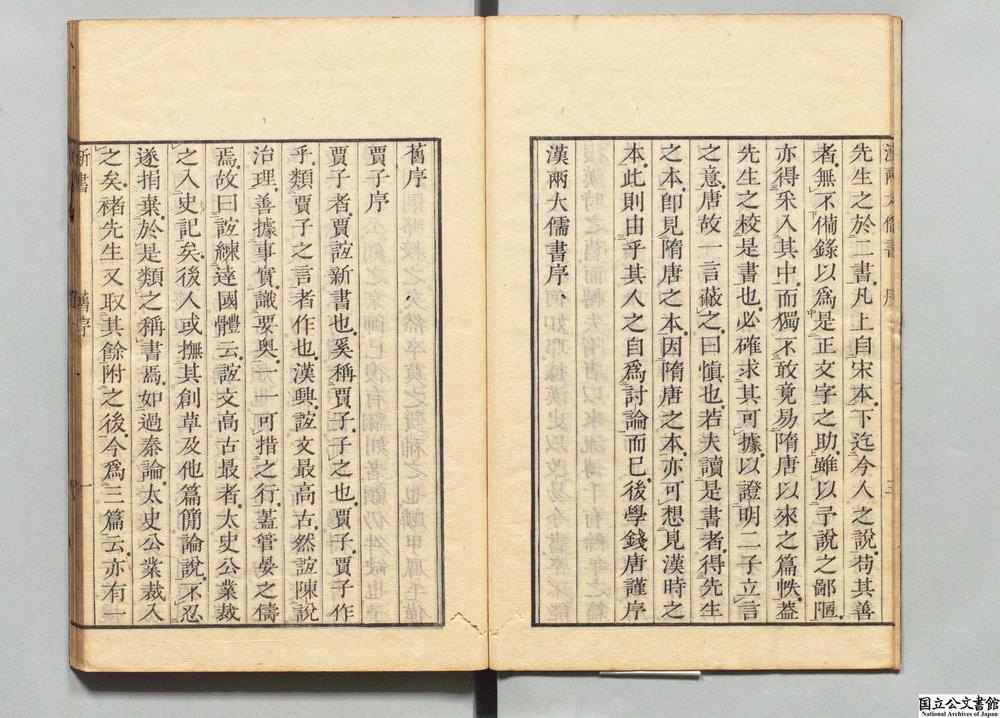 先生之於二書凡上自宋本下迄今人之說苟其善
者無不備錄以爲是正文字之助雖以予說之鄙陋
亦得采入其中而獨不敢竟易隋唐以來之篇帙蓋
先生之校是書也必確求其可據以證明二子立言
之意唐故一言蔽之曰愼也若夫讀是書者得先生
之本卽見隋唐之本因隋唐之本亦可想見漢時之
本此則由乎其人之自爲討論而已後學錢唐謹序
漢兩大儒書序
舊序
賈子序
賈子者賈誼新書也奚稱賈子子之也賈子賈子作
乎類賈子之言者作也漢興誼文最高古然誼陳說
治理善據事實識要奧一一可措之行蓋管晏之儔
焉故曰誼練達國體云誼文高古最者太史公業裁
之入史記矣後人或撫其創草及他篇簡論說不忍
遂捐棄於是類之稱書焉如過秦論太史公業裁入
之矣褚先生又取其餘附之後今爲三篇云亦有一
新書 舊序 一
国立公文書館
National Archives of Japan